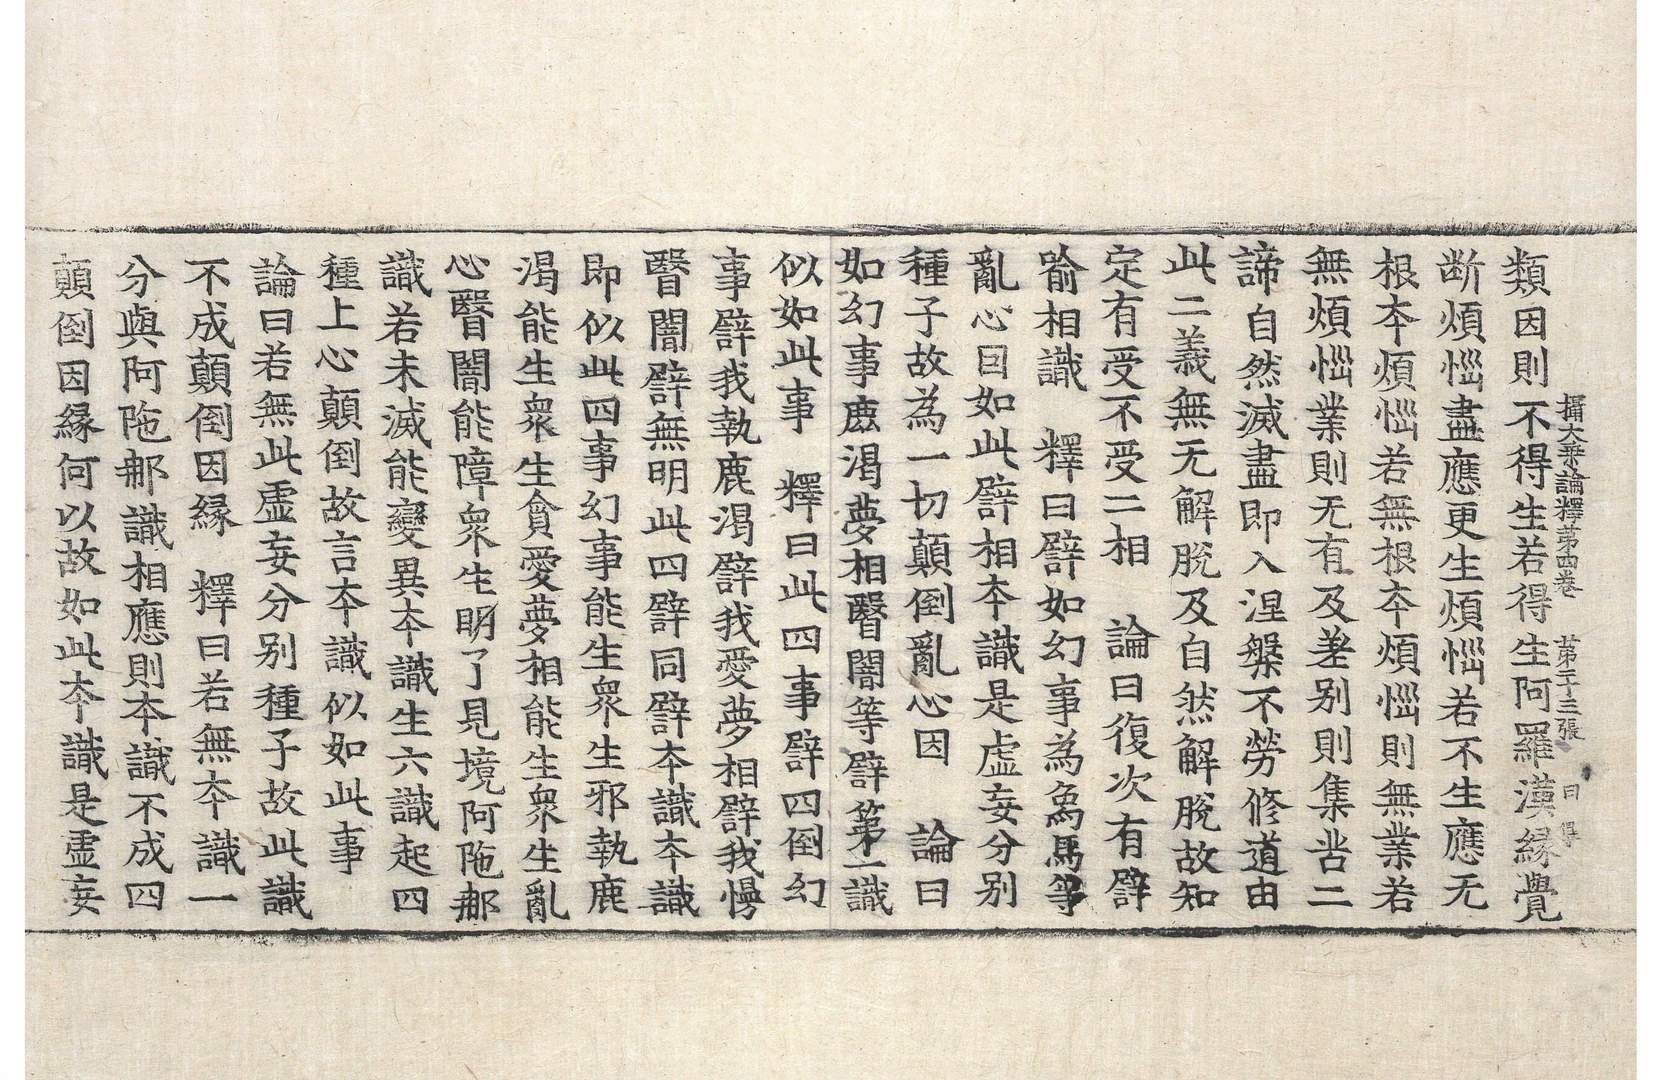 攝大乗論釋第四卷 苐二十三張
類因則不得生若得生阿羅漢緣覺
断煩惱盡應更生煩惱若不生應无
根夲煩惱若無根夲煩惱則無業若
無煩惱業則无有及差别則集苦二
諦自然滅盡即入涅槃不勞修道由
此二義無无解脫及自然解脫故知
定有受不受二相 論曰復次有譬
喻相識 釋曰譬如幻事為象馬等
亂心因如此譬相夲識是虛妄分别
種子故為一切顛倒亂心因 論曰
如幻事鹿渴夢相翳闇等譬第一識
似如此事 釋曰此四事譬四倒幻
事譬我執鹿渴譬我愛夢相譬我慢
翳闇譬無明此四譬同譬夲識夲識
即似此四事幻事能生衆生邪執鹿
渴能生衆生貪愛夢相能生衆生亂
心翳闇能障衆生明了見境阿陁那
識若未滅能變異夲識生六識起四
種上心顛倒故言夲識似如此事
論曰若無此虛妄分别種子故此識
不成顛倒因緣 釋曰若無夲識一
分與阿陁那識相應則夲識不成四
顛倒因緣何以故如此夲識是虛妄